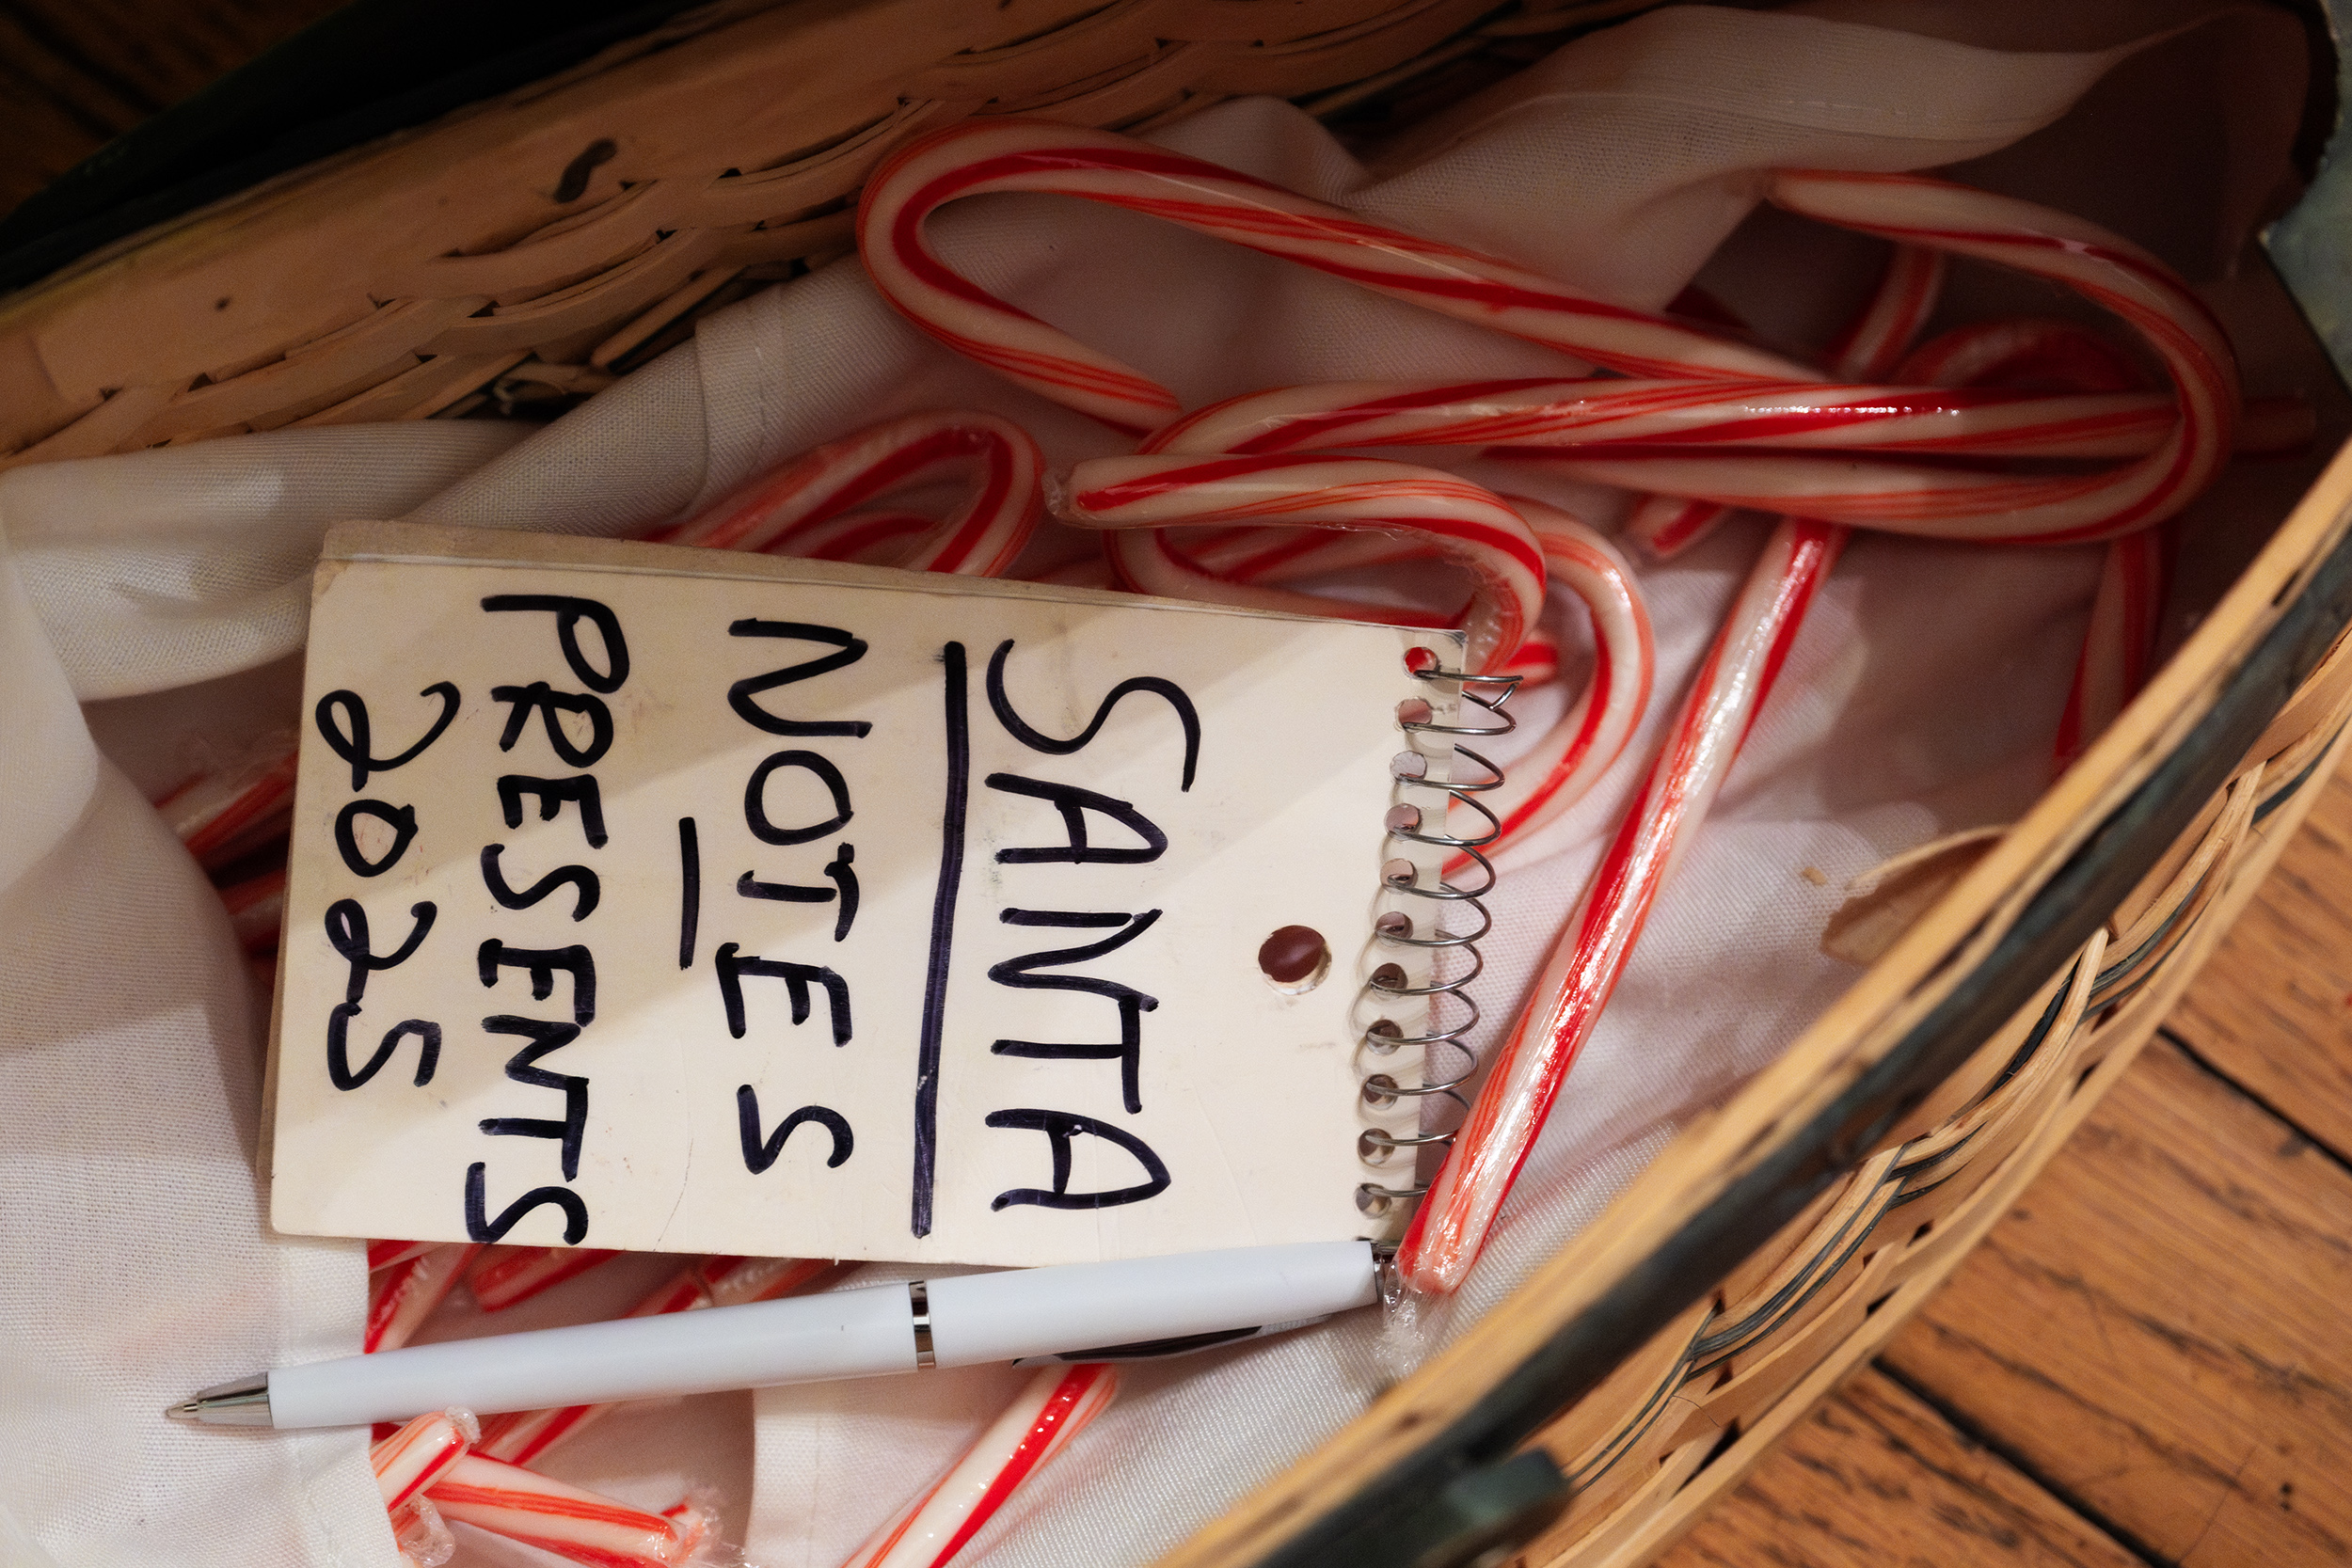 SANTA
NOTES
-
PRESENTS
2025